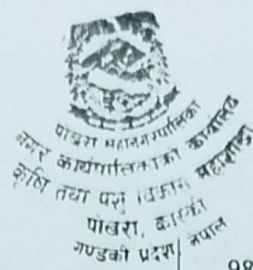 पोखरा महानगरपालिका
नगर कार्यपालिकाको कार्यालय
कृषि तथा पशु विकास महाशाखा
पोखरा, कास्की
गण्डकी प्रदेश, नेपाल
98